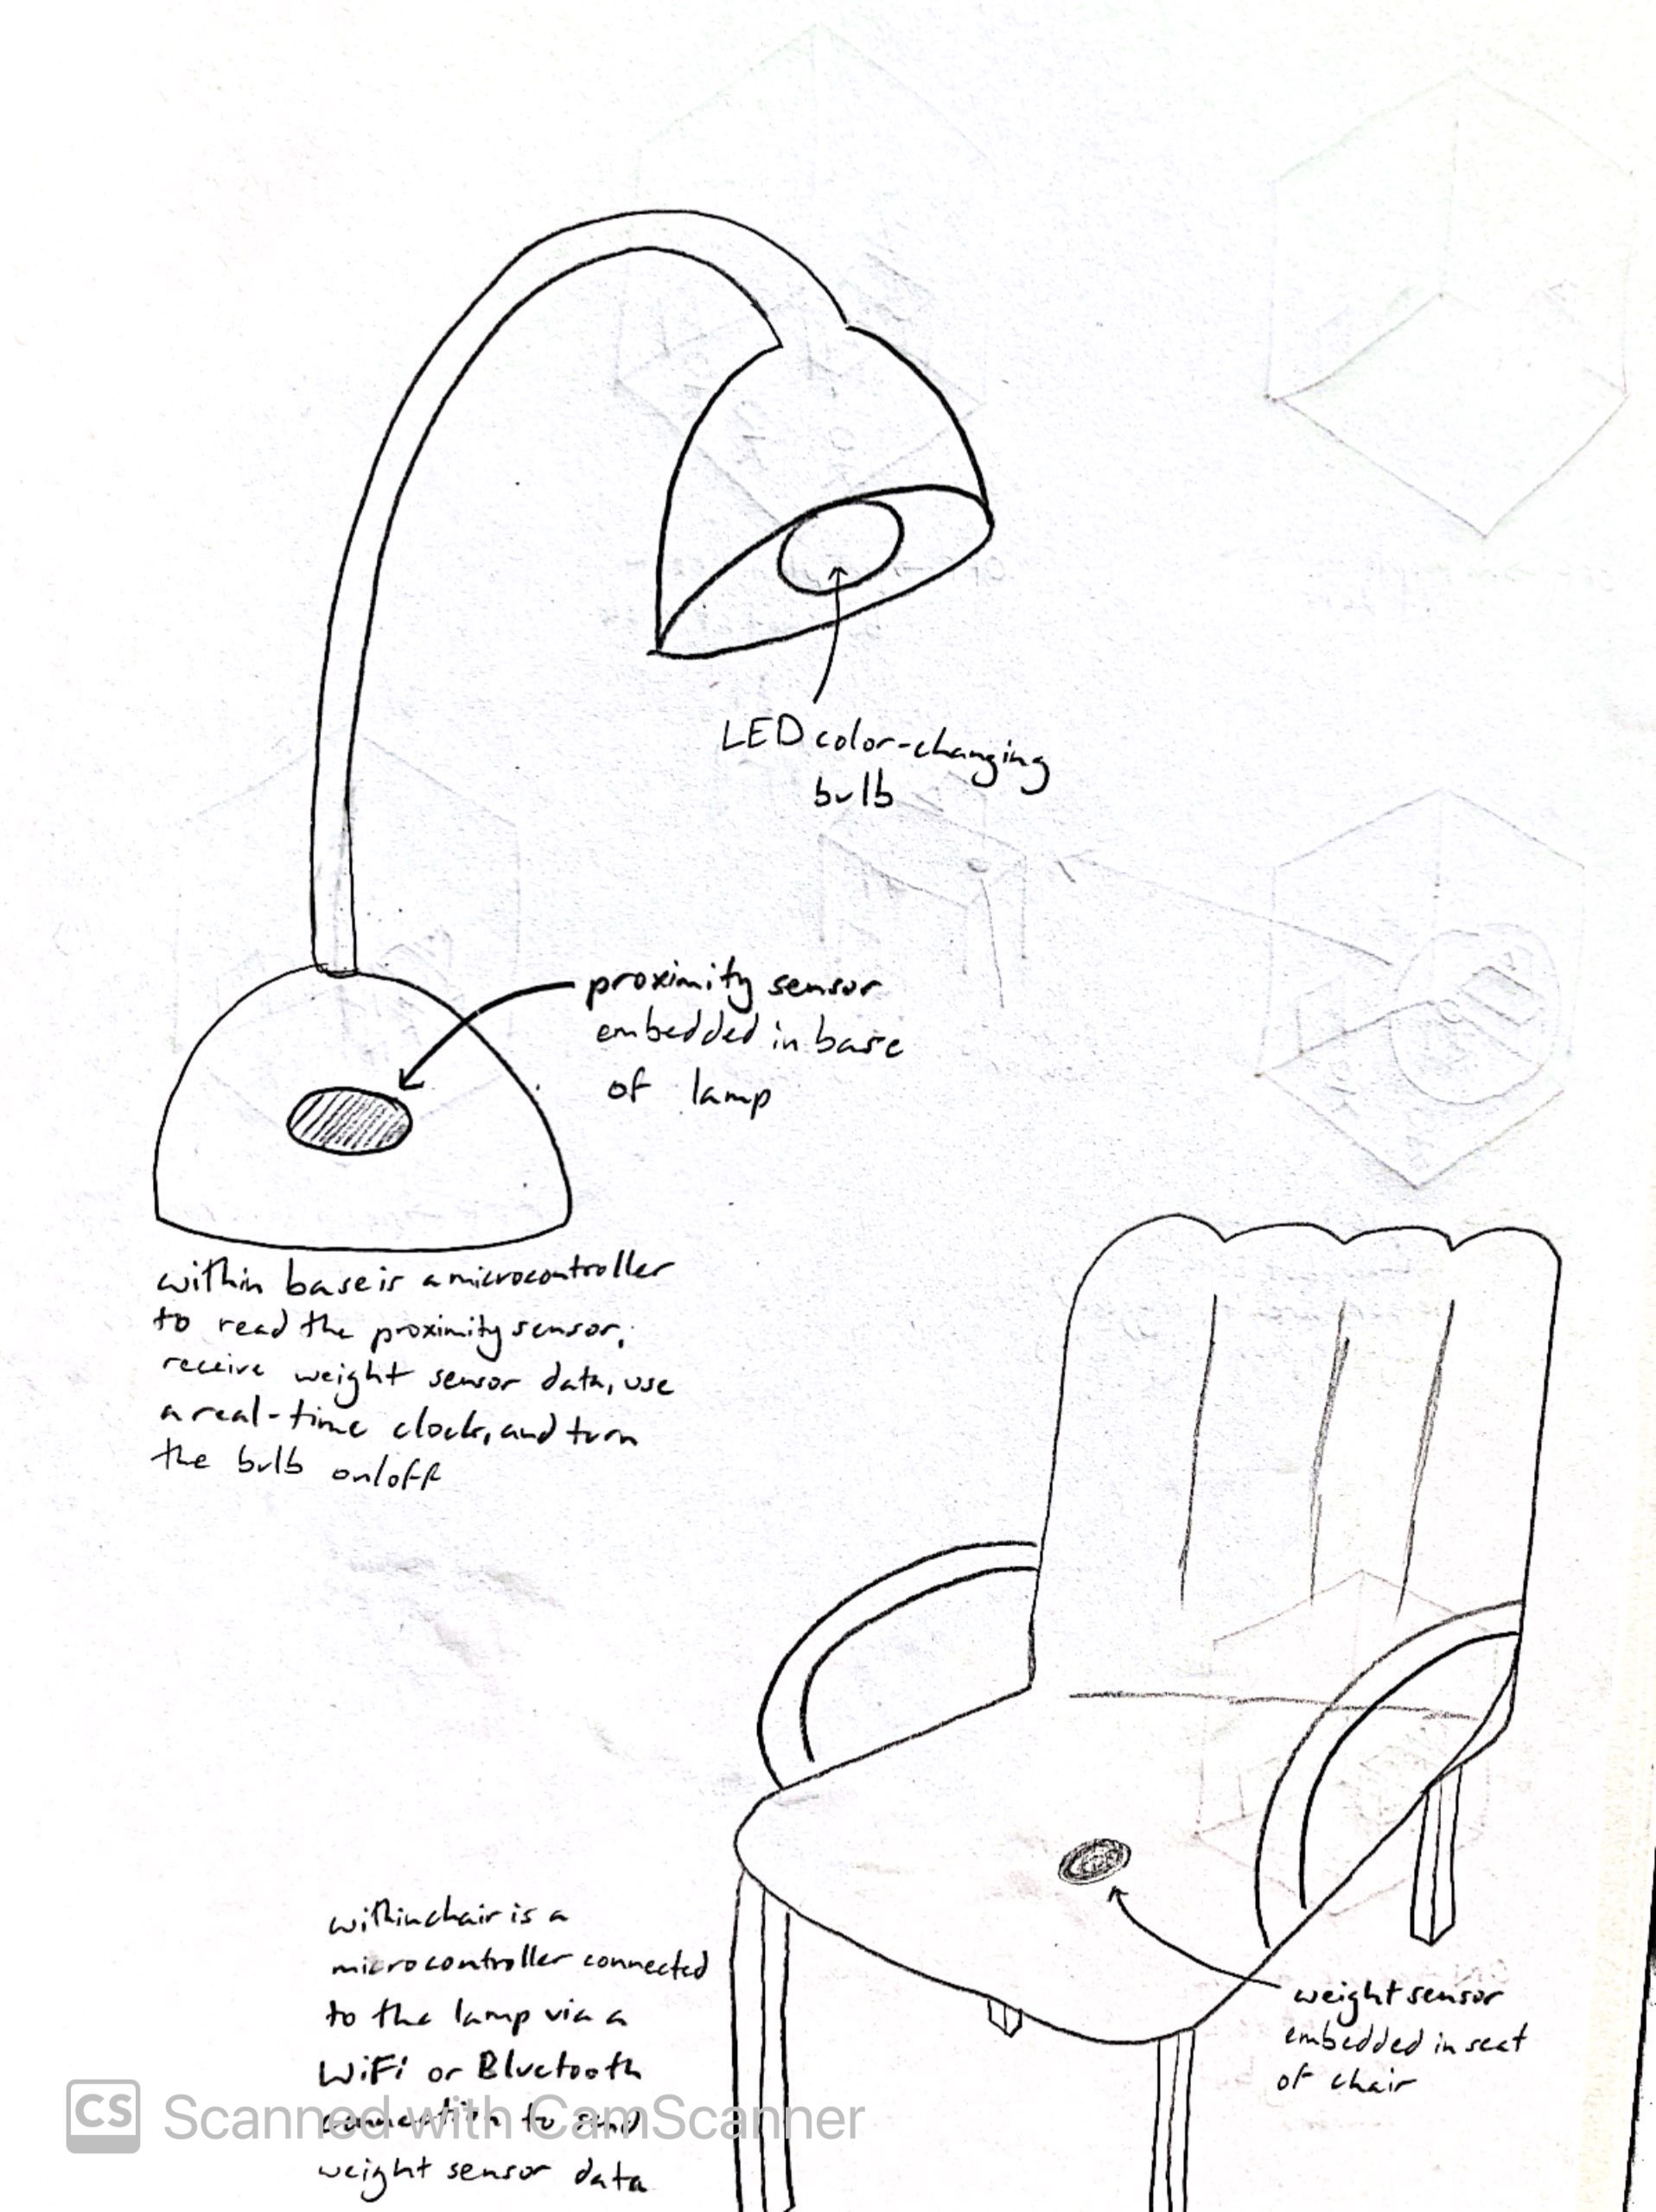 LED color-changing
bulb
proximity sensor
embedded in base
of lamp
within base is a microcontroller
to read the proximity sensor,
receive weight sensor data, use
a real-time clock, and turn
the bulb on/off
within chair is a
microcontroller connected
to the lamp via a
WiFi or Bluetooth
connection to send
weight sensor data
weight sensor
embedded in seat
of chair
CS Scanned with CamScanner